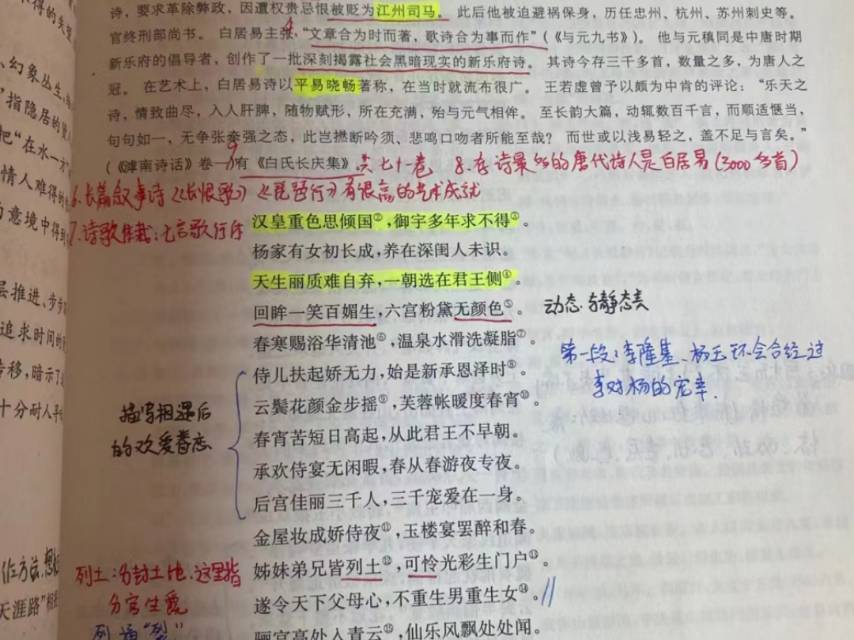 诗，要求革除弊政，因遭权贵忌恨被贬为江州司马。此后他被迫避祸保身，历任忠州、杭州、苏州刺史等。
官终刑部尚书。白居易主张，“文章合为时而著，歌诗合为事而作”(《与元九书》)。他与元稹同是中唐时期
新乐府的倡导者，创作了一批深刻揭露社会黑暗现实的新乐府诗。其诗今存三千多首，数量之多，为唐人之
冠。在艺术上，白居易诗以平易晓畅著称，在当时就流布很广。王若虚曾予以颇为中肯的评论：“乐天之
诗，情致曲尽，入人肝脾，随物赋形，所在充满，殆与元气相侔。至长韵大篇，动辄数百千言，而顺适惬当，
句句如一，无争张牵强之态，此岂撚断吟须、悲鸣口吻者所能至哉？而世或以浅易轻之，盖不足与言矣。”
(《滹南诗话》卷一)有《白氏长庆集》
共七十一卷 8.存诗最多的唐代诗人是白居易(3000多首)
6.长篇叙事诗《长恨歌》《琵琶行》有很高的艺术成就
7.诗歌体裁：七言歌行体
汉皇重色思倾国②，御宇多年求不得③。
杨家有女初长成，养在深闺人未识。
天生丽质难自弃，一朝选在君王侧④。
回眸一笑百媚生，六宫粉黛无颜色⑤。
动态、与静态美
春寒赐浴华清池⑥，温泉水滑洗凝脂⑦。
第一段：李隆基、杨玉环会合经过
李对杨的宠幸.
侍儿扶起娇无力，始是新承恩泽时⑧。
云鬓花颜金步摇⑨，芙蓉帐暖度春宵⑩。
描写相遇后
的欢爱眷恋
春宵苦短日高起，从此君王不早朝。
承欢侍宴无闲暇，春从春游夜专夜。
后宫佳丽三千人，三千宠爱在一身。
金屋妆成娇侍夜⑪，玉楼宴罢醉和春。
姊妹弟兄皆列土⑫，可怜光彩生门户⑬。
列土：分封土地，这里指
分官生爱
遂令天下父母心，不重生男重生女⑭。
列通“裂”
骊宫高处入青云⑮，仙乐风飘处处闻。
幻象丛生
指隐居的
把“在水一方
情人难得
意境中得到
层推进、步步
追求时间的
移，暗示了
十分耐人寻
作方法，想
天涯路”相